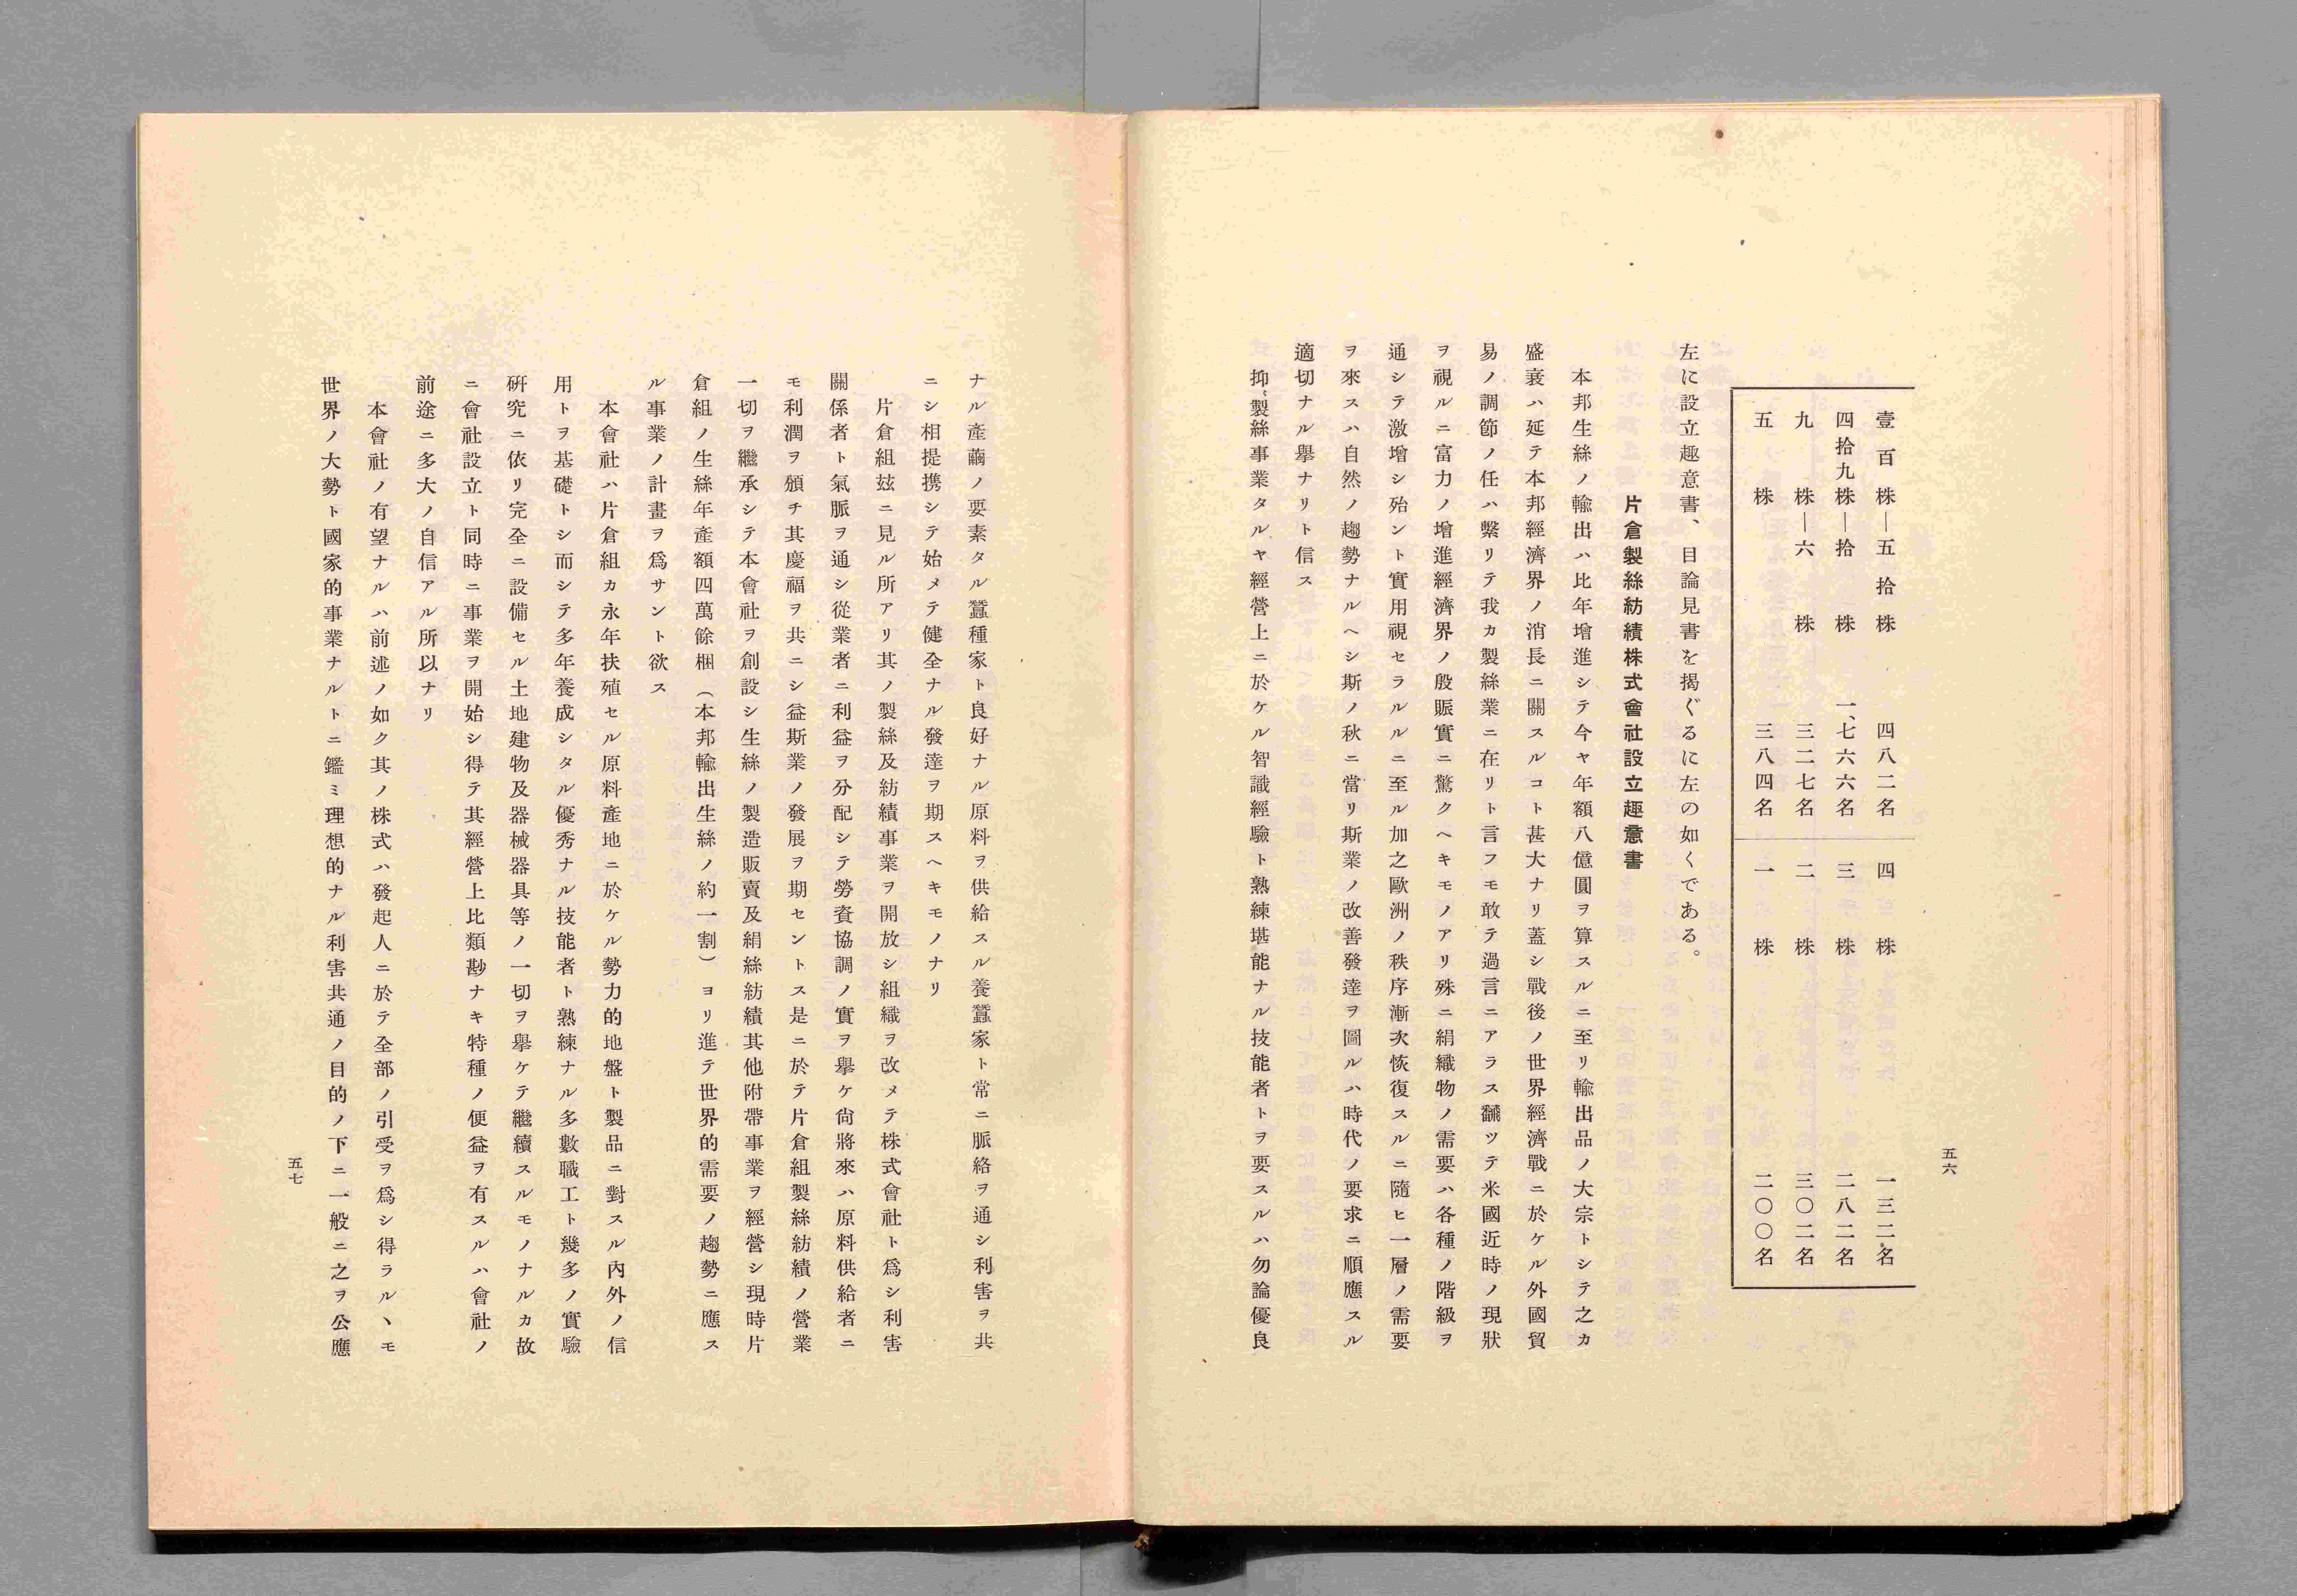 五六
壹百株―五拾株 四八二名 四株 一三二名
四拾九株―拾株 一、七六六名 三株 二八二名
九株―六株 三二七名 二株 三〇二名
五株 三八四名 一株 二〇〇名
左に設立趣意書、目論見書を揭ぐるに左の如くである。
片倉製絲紡績株式會社設立趣意書
本邦生絲ノ輸出ハ比年增進シテ今ヤ年額八億圓ヲ算スルニ至リ輸出品ノ大宗トシテ之カ
盛衰ハ延テ本邦經濟界ノ消長ニ關スルコト甚大ナリ蓋シ戰後ノ世界經濟戰ニ於ケル外國貿
易ノ調節ノ任ハ繫リテ我カ製絲業ニ在リト言フモ敢テ過言ニアラス飜ツテ米國近時ノ現狀
ヲ視ルニ富力ノ增進經濟界ノ殷賑實ニ驚クヘキモノアリ殊ニ絹織物ノ需要ハ各種ノ階級ヲ
通シテ激增シ殆ント實用視セラルルニ至ル加之歐洲ノ秩序漸次恢復スルニ隨ヒ一層ノ需要
ヲ來スハ自然ノ趨勢ナルヘシ斯ノ秋ニ當リ斯業ノ改善發達ヲ圖ルハ時代ノ要求ニ順應スル
適切ナル擧ナリト信ス
抑〻製絲事業タルヤ經營上ニ於ケル智識經驗ト熟練堪能ナル技能者トヲ要スルハ勿論優良
ナル產繭ノ要素タル蠶種家ト良好ナル原料ヲ供給スル養蠶家ト常ニ脈絡ヲ通シ利害ヲ共
ニシ相提携シテ始メテ健全ナル發達ヲ期スヘキモノナリ
片倉組玆ニ見ル所アリ其ノ製絲及紡績事業ヲ開放シ組織ヲ改メテ株式會社ト爲シ利害
關係者ト氣脈ヲ通シ從業者ニ利益ヲ分配シテ勞資協調ノ實ヲ擧ケ尙將來ハ原料供給者ニ
モ利潤ヲ頒チ其慶福ヲ共ニシ益斯業ノ發展ヲ期セントス是ニ於テ片倉組製絲紡績ノ營業
一切ヲ繼承シテ本會社ヲ創設シ生絲ノ製造販賣及絹絲紡績其他附帶事業ヲ經營シ現時片
倉組ノ生絲年產額四萬餘梱（本邦輸出生絲ノ約一割）ヨリ進テ世界的需要ノ趨勢ニ應ス
ル事業ノ計畫ヲ爲サント欲ス
本會社ハ片倉組カ永年扶殖セル原料產地ニ於ケル勢力的地盤ト製品ニ對スル內外ノ信
用トヲ基礎トシ而シテ多年養成シタル優秀ナル技能者ト熟練ナル多數職工ト幾多ノ實驗
硏究ニ依リ完全ニ設備セル土地建物及器械器具等ノ一切ヲ擧ケテ繼續スルモノナルカ故
ニ會社設立ト同時ニ事業ヲ開始シ得テ其經營上比類尠ナキ特種ノ便益ヲ有スルハ會社ノ
前途ニ多大ノ自信アル所以ナリ
本會社ノ有望ナルハ前述ノ如ク其ノ株式ハ發起人ニ於テ全部ノ引受ヲ爲シ得ラルヽモ
世界ノ大勢ト國家的事業ナルトニ鑑ミ理想的ナル利害共通ノ目的ノ下ニ一般ニ之ヲ公應
五七